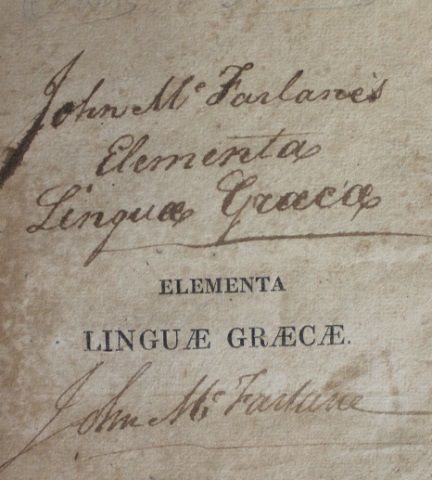 John Mc Farlane's
Elementa
Linguæ Græcæ
ELEMENTA
LINGUÆ GRÆCÆ.
John Mc Farlane